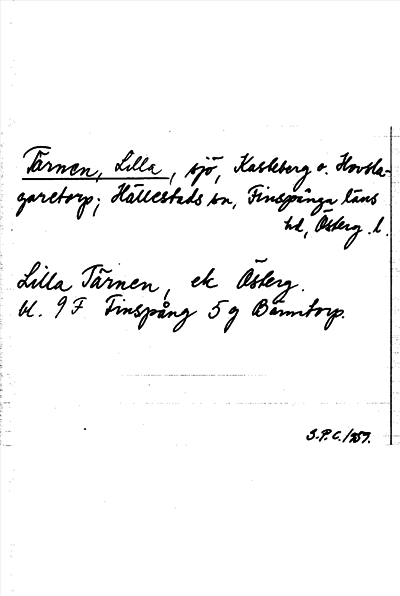 Tärnen, Lilla, sjö, Kasleberg o. Hovsla-
garetorp; Hällestads sn, Finspånga läns
hd, Österg. l.
Lilla Tärnen, ek Österg.
bl. 9 F Finspång 5 g Bänntorp.
S.P.C./1957.